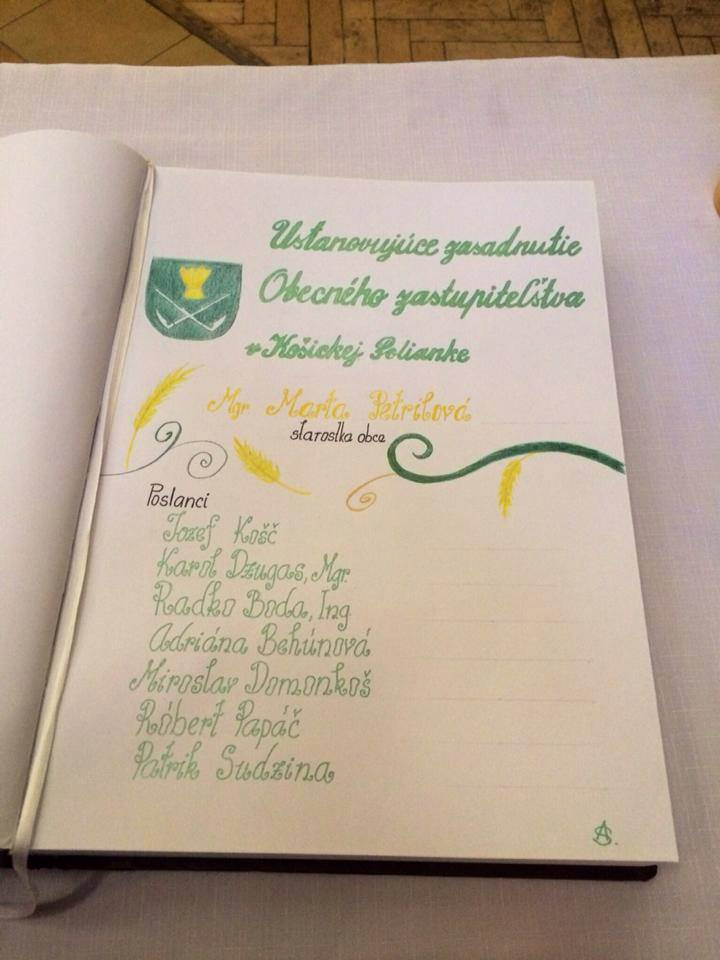 Ustanovujúce zasadnutie
Obecného zastupiteľstva
v Košickej Polianke
Mgr. Marta Petrilová
starostka obce
Poslanci
Jozef Košč
Karol Dzugas, Mgr.
Radko Boda, Ing
Adriána Behúnová
Miroslav Domonkoš
Róbert Papáč
Patrik Sudzina